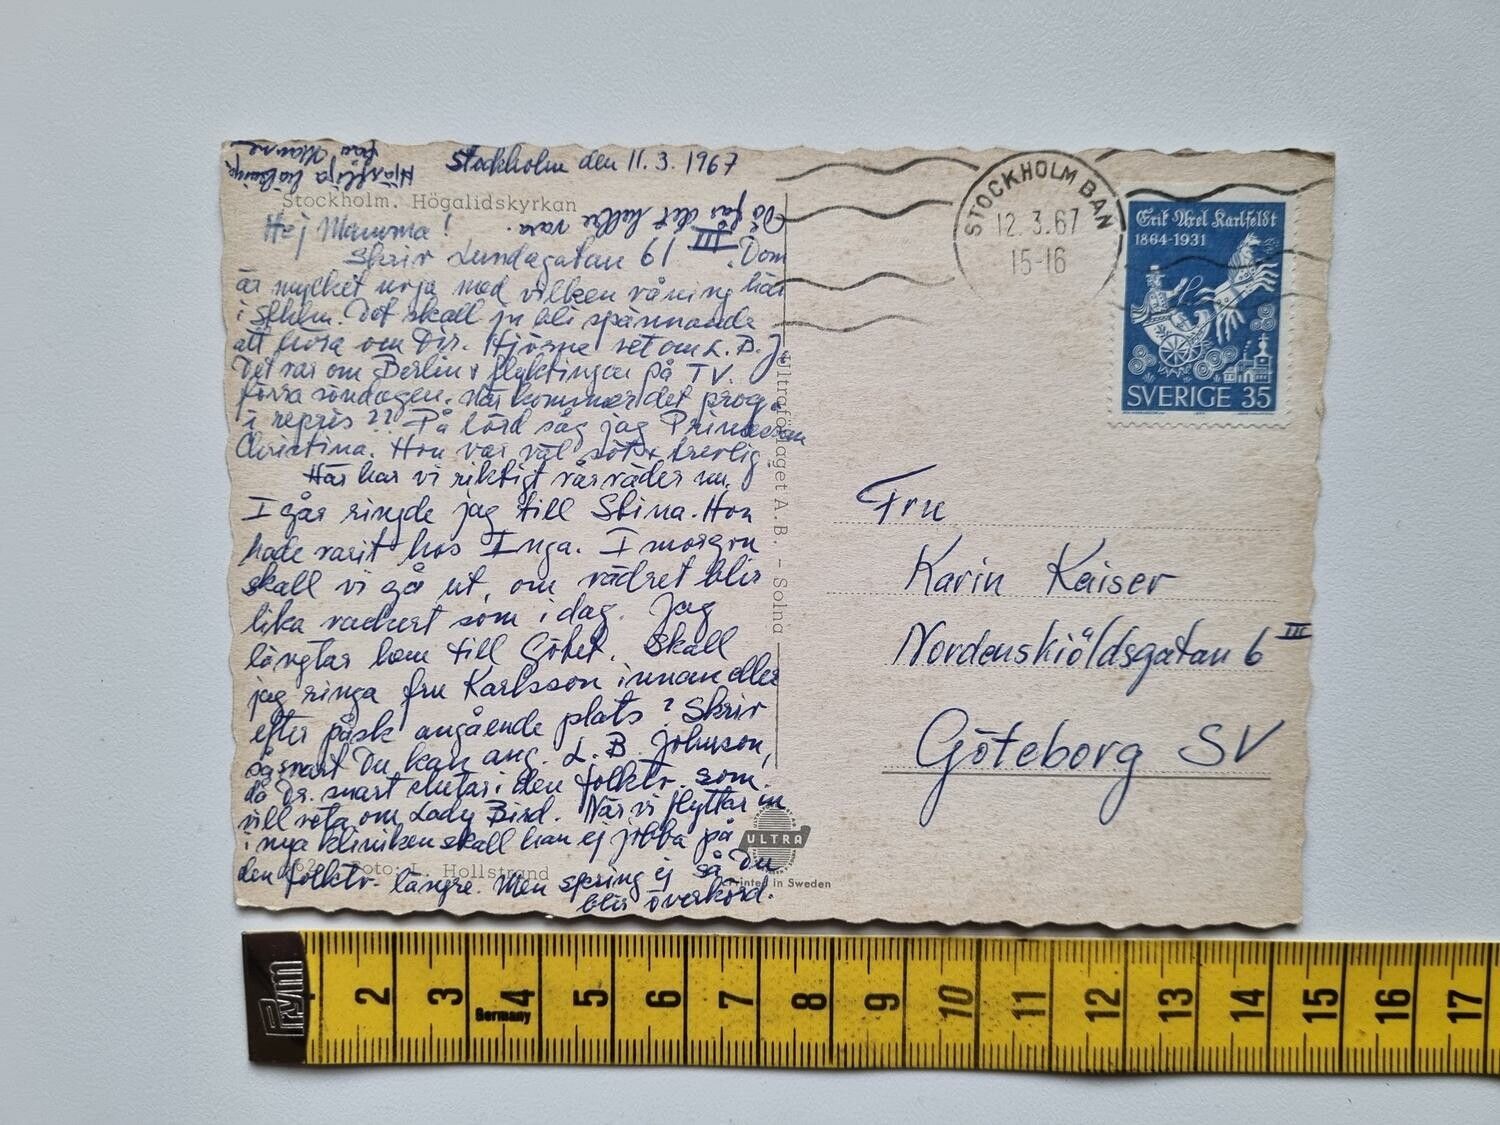 Stockholm den 11.3.1967
Stockholm. Högalidskyrkan
Hej Mamma!
Skriv Lundagatan 61 III. Dom
är mycket noga med vilken våning här
i Sthlm. Det skall ju bli spännande
att höra om Dir. vet om L.B.J.
Det var om Berlin + flyktingen på TV.
förra söndagen. När kommer det prog.
i repris?? På lörd såg jag Prinsessan
Christina. Hon var väl söt + trevlig
Här har vi riktigt vårväder nu.
I går ringde jag till Stina. Hon
hade varit hos Inga. I morgon
skall vi gå ut, om vädret blir
lika vackert som i dag. Jag
längtar hem till Götet. Skall
jag ringa fru Karlsson innan eller
efter påsk angående plats? Skriv
så snart Du kan ang. L.B. Johnson,
då Dr. snart slutar i den folktv. som
vill veta om Lady Bird. När vi flyttar in
i nya kliniken skall han ej jobba på
den folktv. längre. Men spring ej så Du
blir överkörd.
Då får det hellre vara.
Hjärtliga hälsningar
från
Foto: L. Hollstrand
Ultraförlaget A.B. - Solna
ULTRA
Printed in Sweden
STOCKHOLM BAN
12.3.67
15-16
Erik Axel Karlfeldt
1864-1931
SVERIGE 35
Fru
Karin Kaiser
Nordenskiöldsgatan 6 III
Göteborg SV
prym
2 3 4 5 6 7 8 9 10 11 12 13 14 15 16 17
Germany